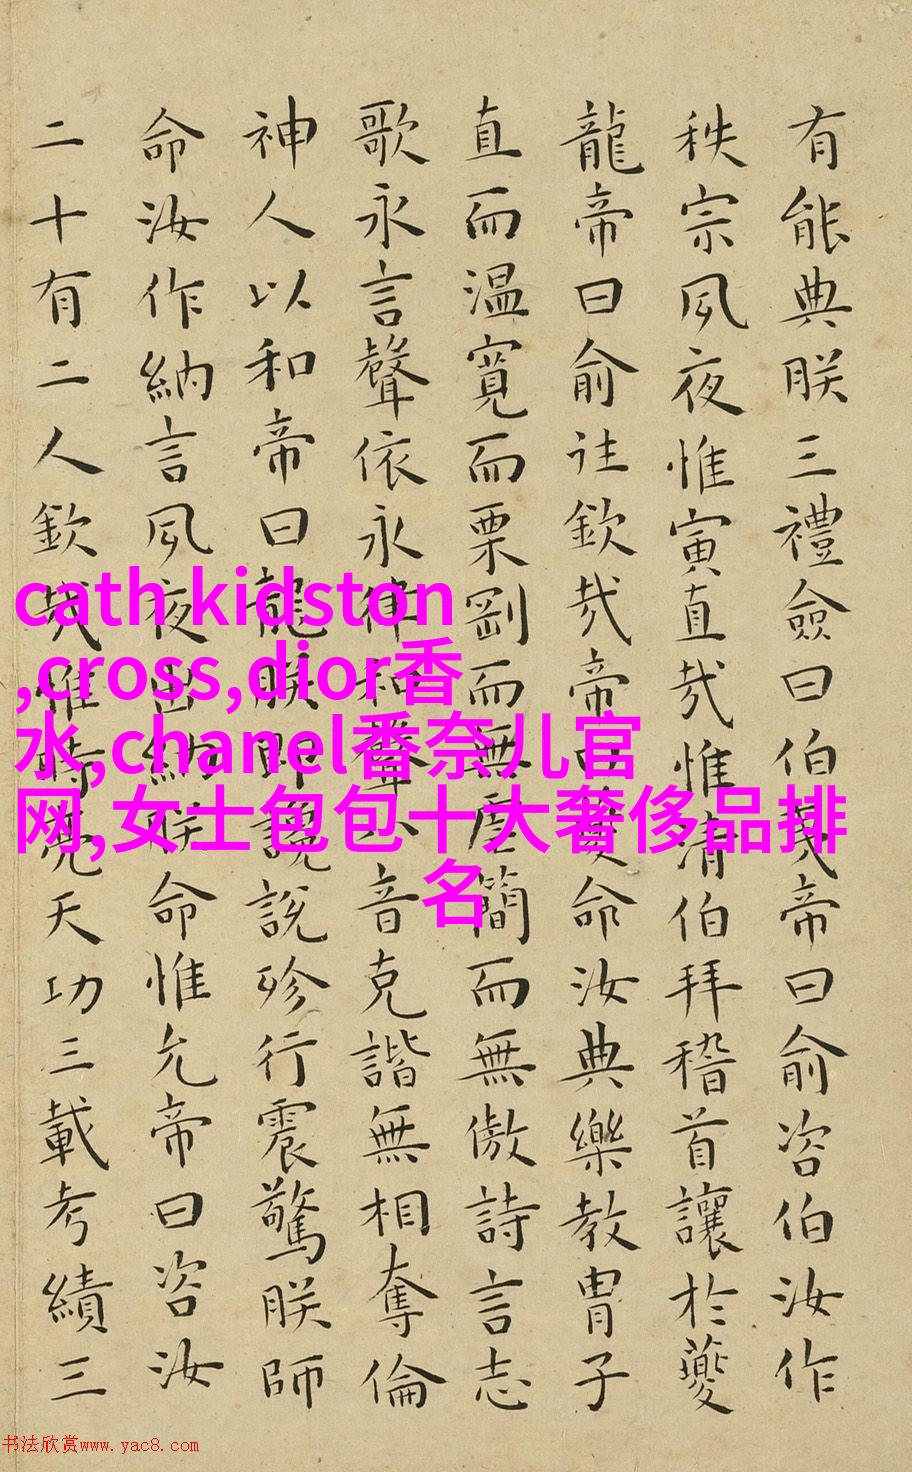 有能典朕三禮僉曰伯夷帝曰俞咨伯汝作
秩宗夙夜惟寅直哉惟清伯拜稽首讓於夔
龍帝曰俞往欽哉帝曰夔命汝典樂教冑子
直而温寬而栗剛而無虐簡而無傲詩言志
歌永言聲依永律和聲八音克諧無相奪倫
神人以和帝曰龍朕堲讒說殄行震驚朕師
命汝作納言夙夜出納朕命惟允帝曰咨汝
二十有二人欽哉惟時亮天功三載考績三
cath kidston
,cross,dior香
水,chanel香奈儿官
网,女士包包十大奢侈品排
名
书法欣赏www.yac8.com